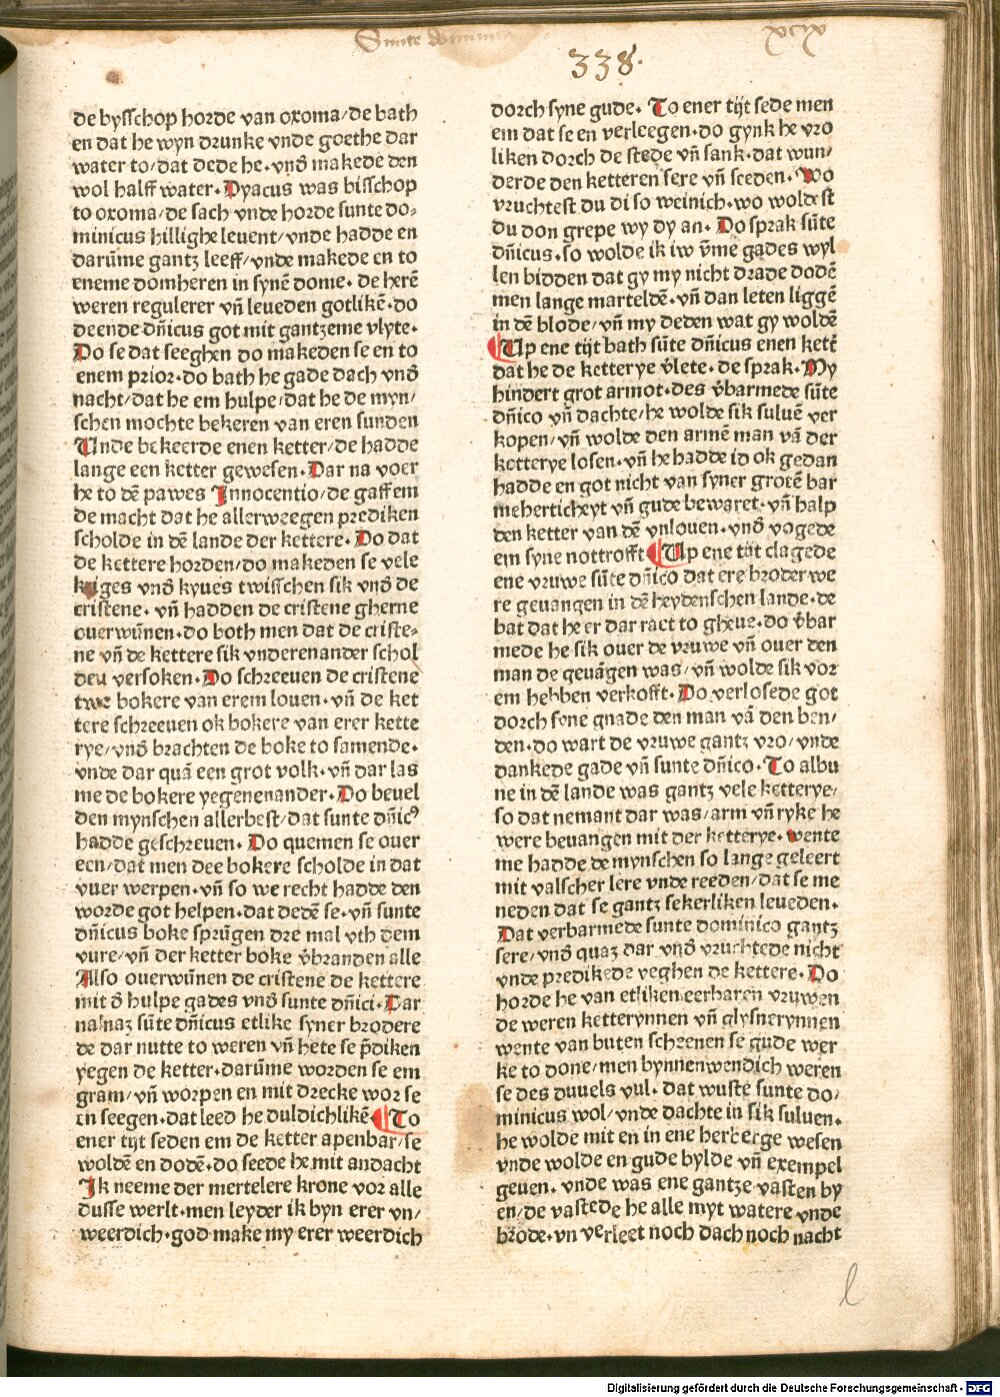 Sunte Domini
xcix
338.
de bysschop horde van oxoma/de bath
en dat he wyn drunke vnde goethe dar
water to/dat dede he. vnd̄ makede den
wol halff water. Dyacus was bisschop
to oxoma/de sach vnde horde sunte do⸗
minicus hillighe leuent/vnde hadde en
darūme gantz leeff/vnde makede en to
eneme domheren in synē dome. de herē
weren regulerer vn̄ leueden gotlikē. do
deende dn̄icus got mit gantzeme vlyte.
Do se dat seeghen do makeden se en to
enem prior. do bath he gade dach vnd̄
nacht/dat he em hulpe/dat he de myn/
schen mochte bekeren van eren sunden
Unde bekeerde enen ketter/de hadde
lange een ketter gewesen. Dar na voer
he to dē pawes Innocentio/de gaff em
de macht dat he allerweegen prediken
scholde in dē lande der kettere. Do dat
de kettere horden/do makeden se vele
kriges vnd̄ kyues twisschen sik vnd̄ de
cristene. vn̄ hadden de cristene gherne
ouerwūnen. do both men dat de criste⸗
ne vn̄ de kettere sik vnderenander schol
den versoken. Do schreeuen de cristene
twe bokere van erem louen. vn̄ de ket
tere schreeuen ok bokere van erer kette
rye/vnd̄ brachten de boke to samende.
vnde dar quā een grot volk. vn̄ dar las
me de bokere yegenenander. Do beuel
den mynschen allerbest/dat sunte dn̄icꝰ
hadde geschreuen. Do quemen se ouer
een/dat men dee bokere scholde in dat
vuer werpen. vn̄ so we recht hadde den
worde got helpen. dat dedē se. vn̄ sunte
dn̄icus boke sprūgen dre mal vth dem
vure/vn̄ der ketter boke v̄branden alle
Also ouerwūnen de cristene de kettere
mit d̄ hulpe gades vnd̄ sunte dn̄ici. Dar
na naz sūte dn̄icus etlike syner brodere
de dar nutte to weren vn̄ hete se p̄diken
yegen de ketter. darūme worden se em
gram/vn̄ worpen en mit drecke wor se
en seegen. dat leed he duldichlikē. To
ener tyt seden em de ketter apenbar/se
woldē en dodē. do seede he mit andacht
Ik neeme der mertelere krone vor alle
dusse werlt. men leyder ik byn erer vn/
weerdich. god make my erer weerdich
dorch syne gude. To ener tijt sede men
em dat se en verleegen. do gynk he vro
liken dorch de stede vn̄ sank. dat wun/
derde den ketteren sere vn̄ seeden. Wo
vruchtest du di so weinich. wo woldest
du don grepe wy dy an. Do sprak sūte
dn̄icus. so wolde ik iw v̄me gades wyl
len bidden dat gy my nicht drade dodē
men lange marteldē. vn̄ dan leten liggē
in dē blode/vn̄ my deden wat gy woldē
Up ene tijt bath sūte dn̄icus enen kett̄
dat he de ketterye v̄lete. de sprak. My
hindert grot armot. des v̄barmede sūte
dn̄ico vn̄ dachte/he wolde sik suluē ver
kopen/vn̄ wolde den armē man vā der
ketterye losen. vn̄ he hadde id ok gedan
hadde en got nicht van syner grotē bar
meherticheyt vn̄ gude bewaret. vn̄ halp
den ketter van dē vnlouen. vnd̄ vogede
em syne nottrofft Up ene tijt clagede
ene vruwe sūte dn̄ico dat ere broder we
re geuangen in dē heydenschen lande. de
bat dat he er dar ract to gheue. do v̄bar
mede he sik ouer de vruwe vn̄ ouer den
man de geuāgen was/vn̄ wolde sik vor
em hebben verkofft. Do verlosede got
dorch syne gnade den man vā den ben/
den. do wart de vruwe gantz vro/vnde
dankede gade vn̄ sunte dn̄ico. To albu
ne in dē lande was gantz vele ketterye/
so dat nemant dar was/arm vn̄ ryke he
were beuangen mit der ketterye. wente
me hadde de mynschen so lange geleert
mit valscher lere vnde reeden/dat se me
neden dat se gantz sekerliken leueden.
Dat verbarmede sunte dominico gantz
sere/vnd̄ quaz dar vnd̄ vruchtede nicht
vnde predikede yeghen de kettere. Do
horde he van etliken eerbaren vruwen
de weren ketterynnen vn̄ glysnerynnen
wente van buten scheenen se gude wer
ke to done/men bynnenwendich weren
se des duuels vul. dat wuste sunte do/
minicus wol/vnde dachte in sik suluen.
he wolde mit en in ene herberge wesen
vnde wolde en gude bylde vn̄ exempel
geuen. vnde was ene gantze vasten by
en/de vastede he alle myt watere vnde
brode. vn verleet noch dach noch nacht
l
Digitalisierung gefördert durch die Deutsche Forschungsgemeinschaft - DFG